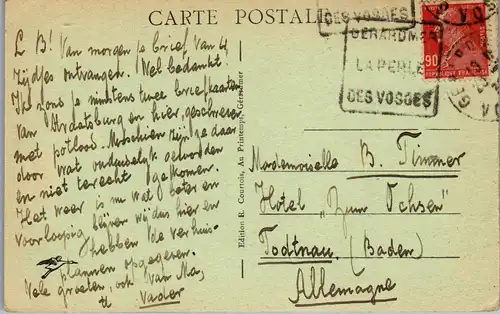 CARTE POSTALE
L B! Van morgen je brief van 4
Zijdjes ontvangen. Wel bedankt!
Ik zond je minstens twee briefkaarten
van en hier, geschreven
met potlood. Misschien zijn ze daar
door wat onduidelijk geworden
en niet terecht gekomen.
Het weer is nu wat beter en
voorloopig blijven wij dus hier en
hebben de verhuis-
plannen opgegeven.
Vele groeten, ook van Ma,
Vader
Edition R. Cournois, Au Printemps, Gérardmer
DES VOSGES
GÉRARDMER
LA PERLE
DES VOSGES
90
RÉPUBLIQUE FRANÇAISE
Mademoiselle B. Timmer
Hotel "Zum Ochsen"
Todtnau (Baden)
Allemagne